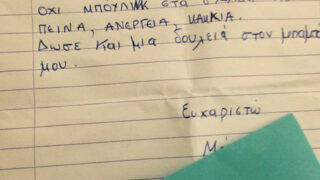 ΟΧΙ ΜΠΟΥΛΙΝΚ ΣΤΑ
ΠΕΙΝΑ, ΑΝΕΡΓΕΙΑ, ΚΑΚΚΙΑ.
Δωσε και μια δουλειά στον μπαμπά
μου.
Ευχαριστώ